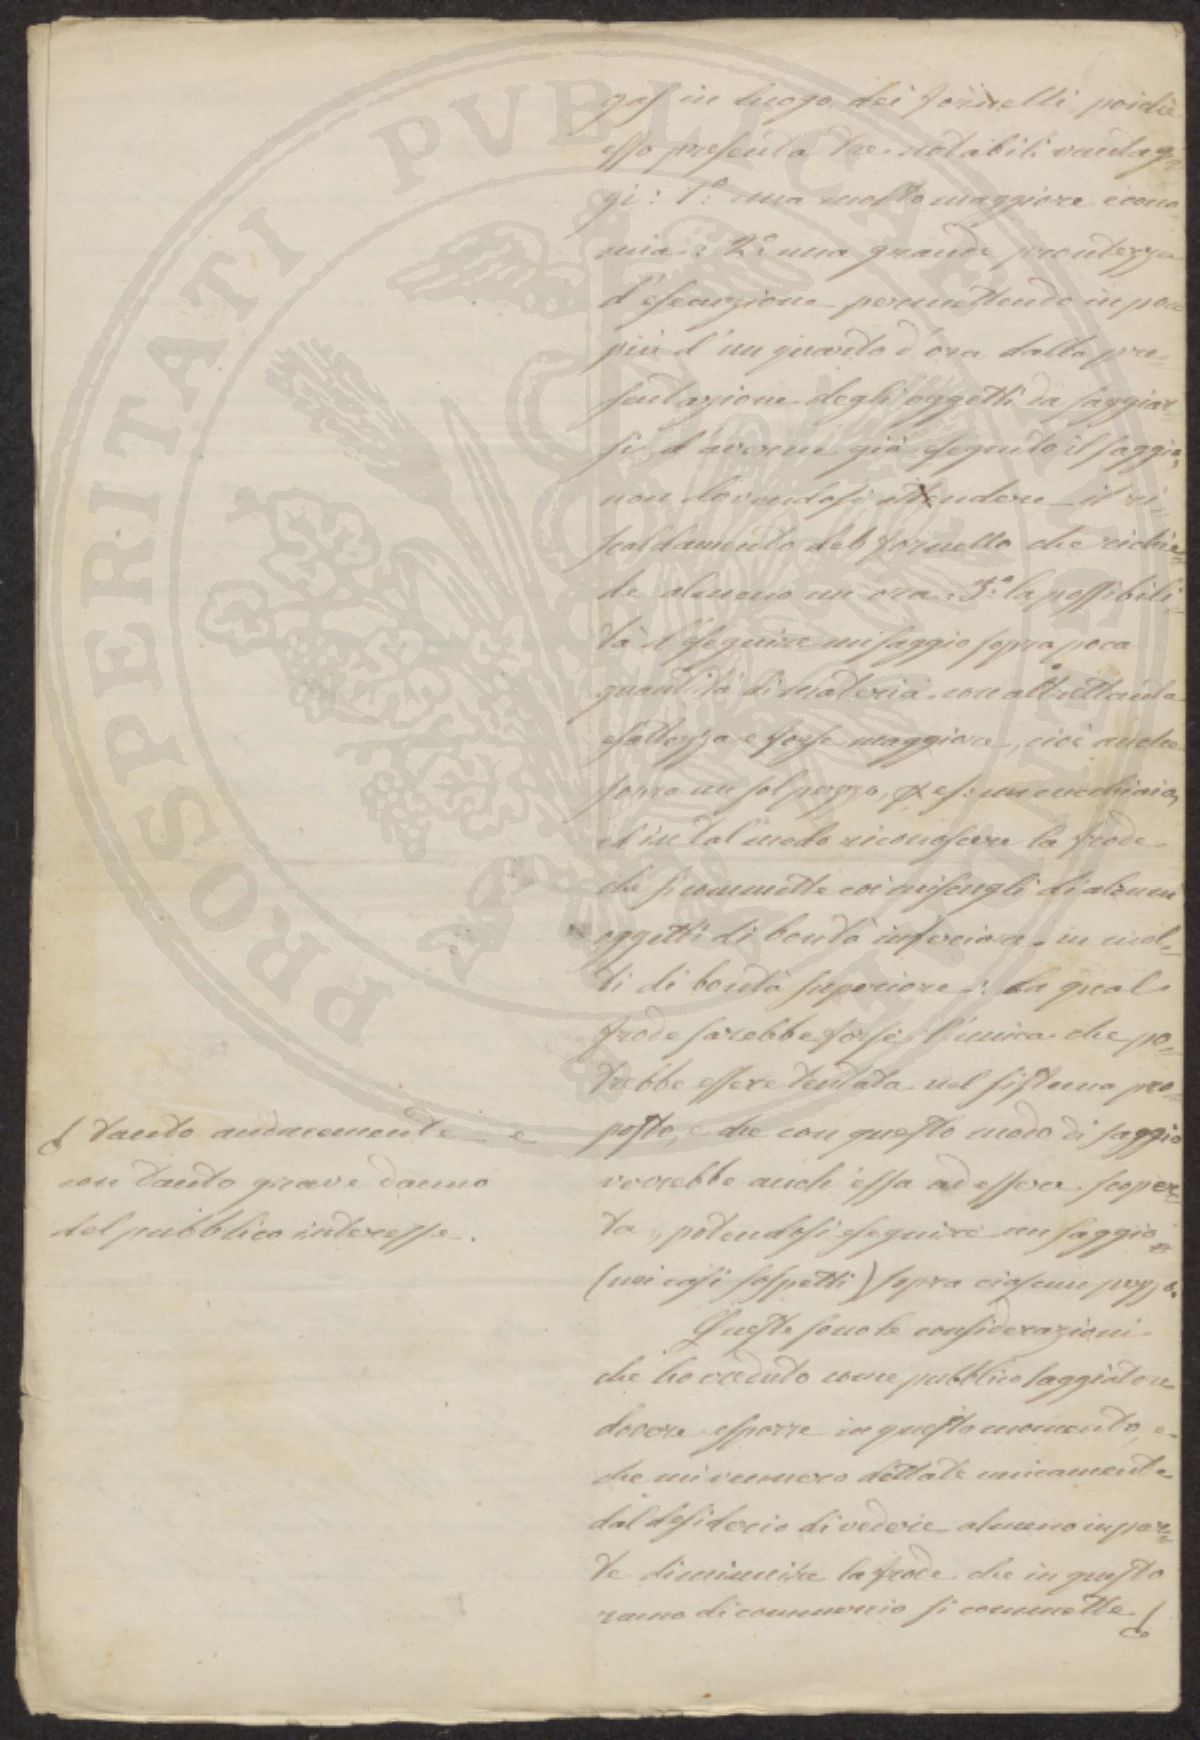 gas in luogo dei fornelli, poichè
esso presenta tre notabili vantag=
gi: 1.° una molto maggiore econo=
mia: 2.° una grande prontezza
d'esecuzione permettendo in poco
più d'un quarto d'ora dalla pre=
sentazione degli oggetti da saggiar=
si d'averne già eseguito il saggio,
non dovendosi attendere il ri=
scaldamento del fornello che richie=
de almeno un ora. 3.° la possibili=
tà d'eseguire un saggio sopra poca
quantità di materia con altrettanta
esattezza e forse maggiore, cioè anche
sopra un sol pezzo, p. es: un cucchiaio,
ed in tal modo riconoscere la frode
che si commette coi miscugli di alcuni
oggetti di bontà inferiore in mol=
ti di bontà superiore: La qual
frode sarebbe forse l'unica che po=
trebbe essere tentata nel sistema pro=
posto, e che con questo modo di saggio
verrebbe anch'essa ad essere scoper=
ta, potendosi eseguire un saggio
(nei casi sospetti) sopra ciascun pezzo.
Queste sono le considerazioni
che ho creduto come pubblico saggiatore
dovere esporre in questo momento, e
che mi vennero dettate unicamente
dal desiderio di vedere almeno in par=
te diminuire la frode che in questo
ramo di commercio si commette
tanto audacemente e
con tanto grave danno
del pubblico interesse.
PROSPERITATI PVBLICAE